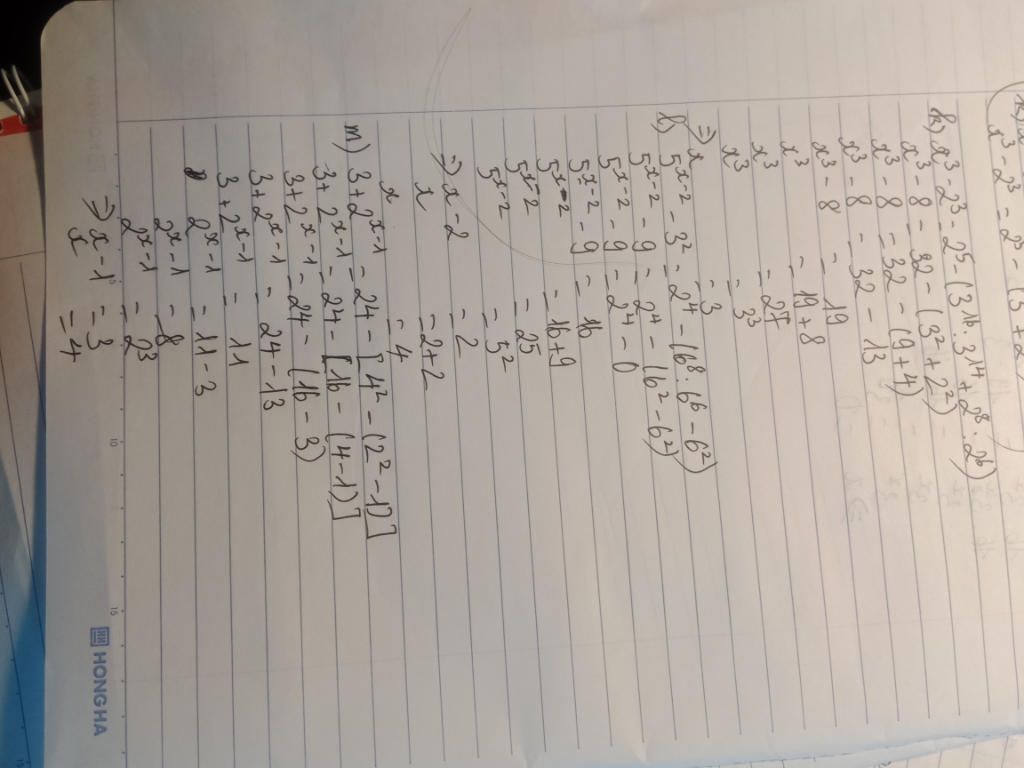 x³ - 2³ = 2⁵ - (3
k) x³ - 2³ = 2⁵ - (3¹⁶ : 3¹⁴ + 2⁸ : 2⁶)
x³ - 8 = 32 - (3² + 2²)
x³ - 8 = 32 - (9 + 4)
x³ - 8 = 32 - 13
x³ - 8 = 19
x³ = 19 + 8
x³ = 27
x³ = 3³
=> x = 3
l) 5ˣ⁻² - 3² = 2⁴ - (6⁸ : 6⁶ - 6²)
5ˣ⁻² - 9 = 2⁴ - (6² - 6²)
5ˣ⁻² - 9 = 2⁴ - 0
5ˣ⁻² - 9 = 16
5ˣ⁻² = 16 + 9
5ˣ⁻² = 25
5ˣ⁻² = 5²
=> x - 2 = 2
x = 2 + 2
x = 4
m) 3 + 2ˣ⁻¹ = 24 - [4² - (2² - 1)]
3 + 2ˣ⁻¹ = 24 - [16 - (4 - 1)]
3 + 2ˣ⁻¹ = 24 - (16 - 3)
3 + 2ˣ⁻¹ = 24 - 13
3 + 2ˣ⁻¹ = 11
2ˣ⁻¹ = 11 - 3
2ˣ⁻¹ = 8
2ˣ⁻¹ = 2³
=> x - 1 = 3
x = 4
5 10 15
HONG HA